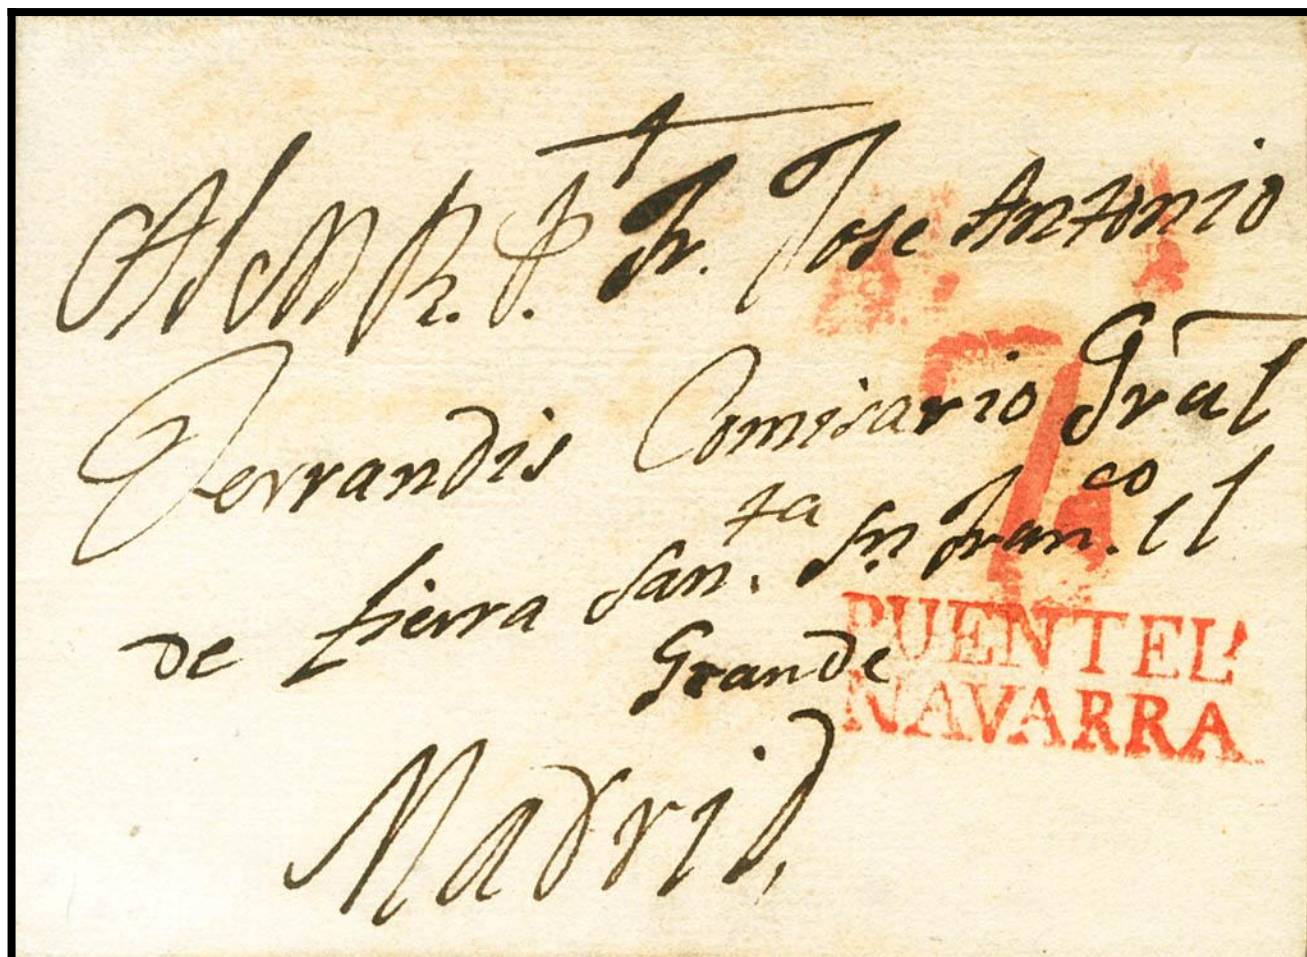 Al M R. P. Fr. Jose Antonio
Ferrandis Comisario Gral
de tierra San.ta Sn. Fran.co el
Grande
Madrid,
PUENTE L
NAVARRA